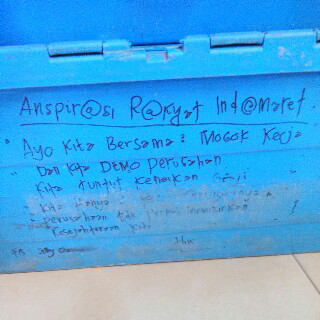 Anspir@si R@kyat Ind@maret.
" Ayo Kita Bersama² Mogok Kerja
" Dan Kita DEMO perusahan
Kita Tuntut Kenaikan Gaji
Kita Hanya
" perusahaan tdk pernah memikirkan
Kesejahteraan Kita !